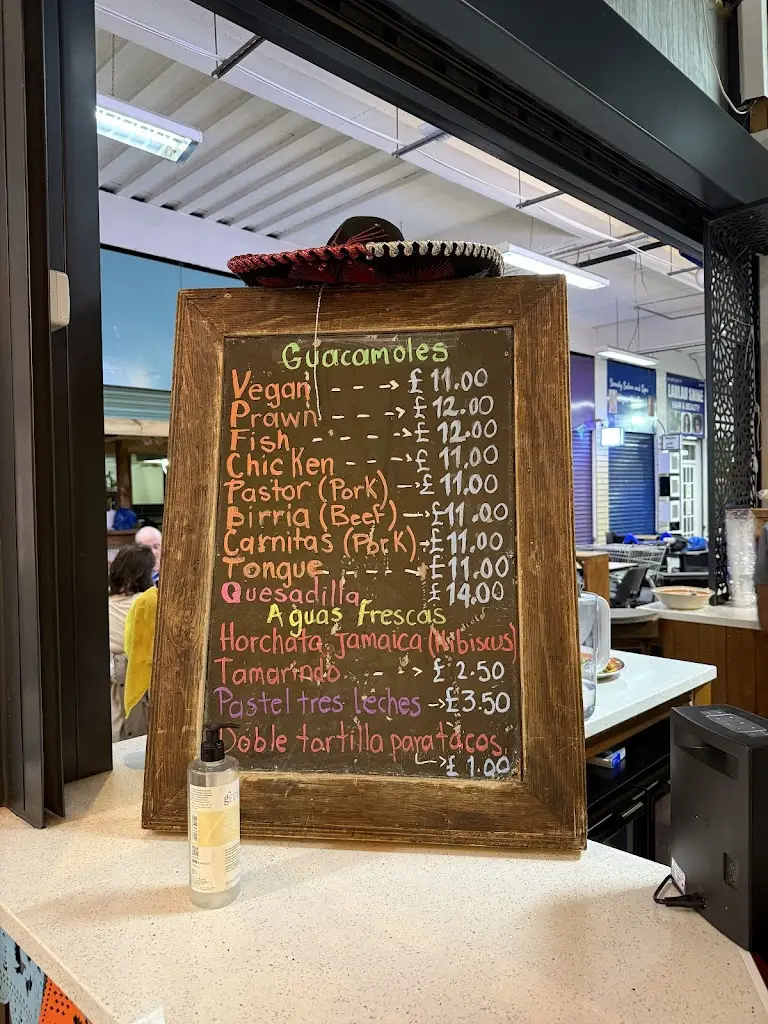 Guacamoles
Vegan - - → £ 11.00
Prawn - - - → £ 12.00
Fish - - - - → £ 12.00
Chicken - - - → £ 11.00
Pastor (Pork) → £ 11.00
Birria (Beef) → £11.00
Carnitas (Pork) → £ 11.00
Tongue - - - → £ 11.00
Quesadilla £ 14.00
Aguas frescas
Horchata Jamaica (Hibiscus)
Tamarindo - - → £ 2.50
Pastel tres leches → £3.50
Doble tortilla para tacos
→ £ 1.00
LAULAU SHINE
HAIR & BEAUTY